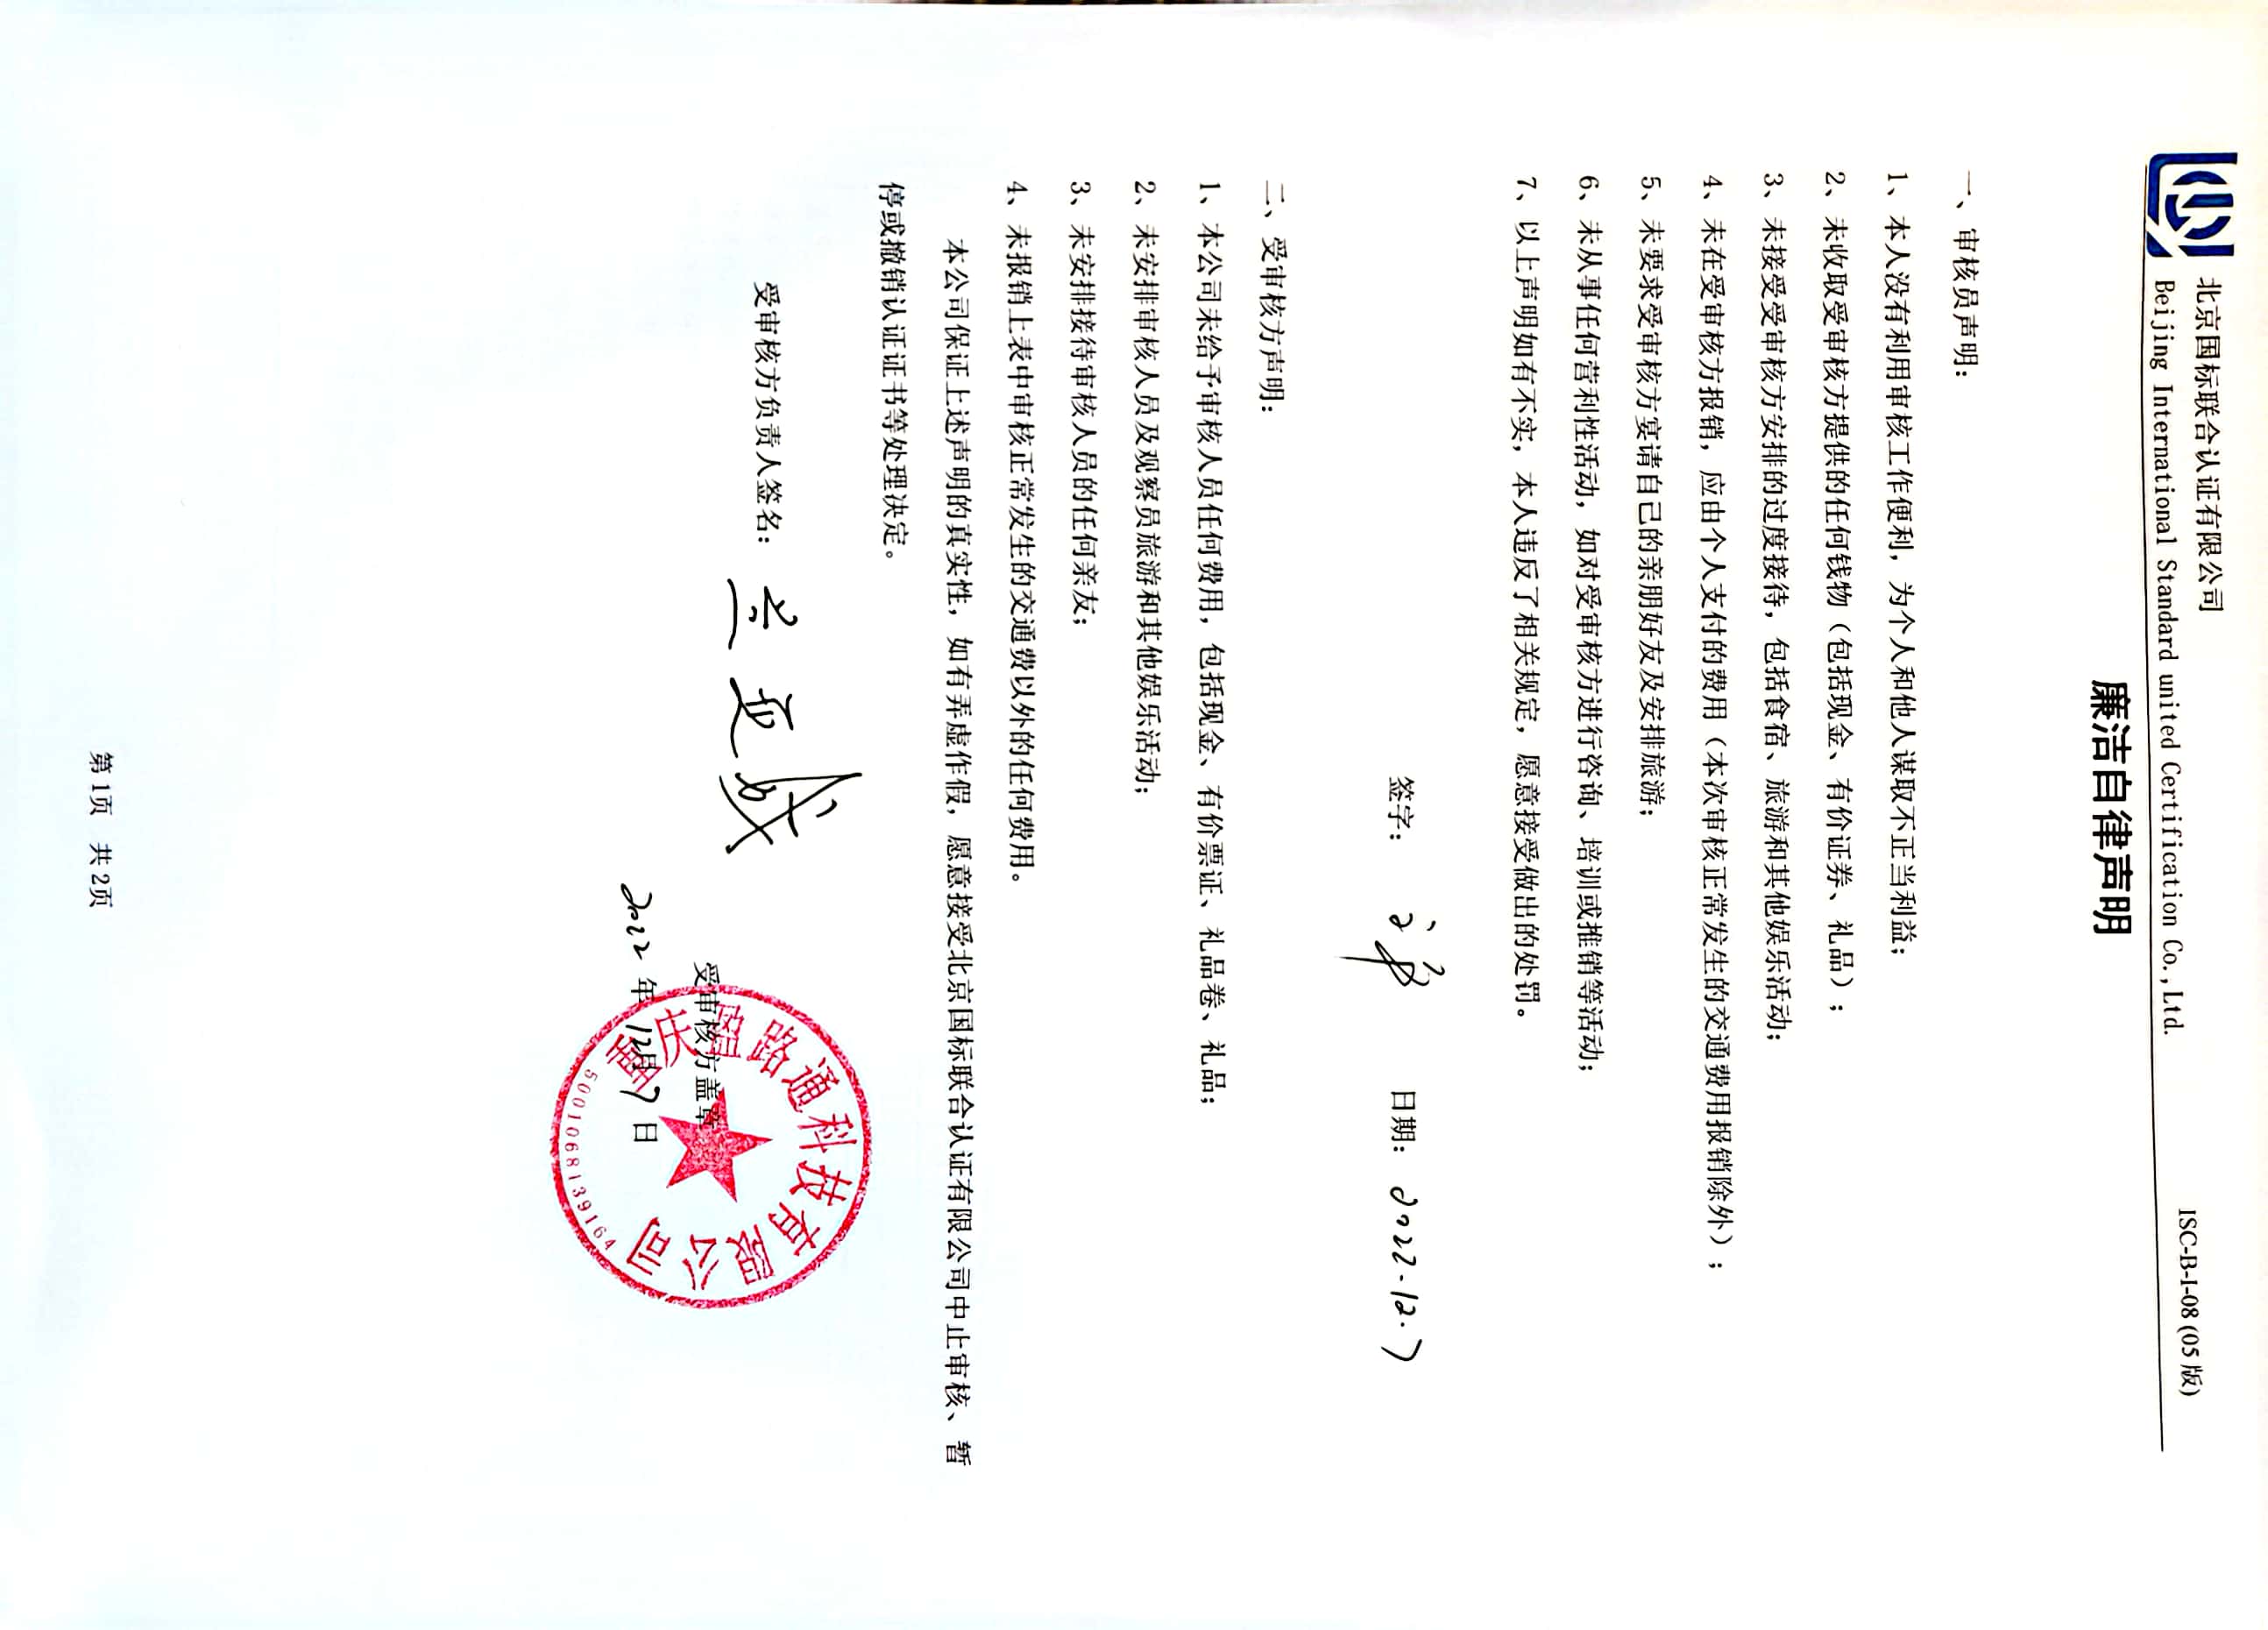 北京国标联合认证有限公司
Beijing International Standard united Certification Co.,Ltd.
ISC-B-I-08(05版)
廉洁自律声明
一、审核员声明：
1、本人没有利用审核工作便利，为个人和他人谋取不正当利益；
2、未收取受审核方提供的任何钱物（包括现金、有价证券、礼品）；
3、未接受受审核方安排的过度接待，包括食宿、旅游和其他娱乐活动；
4、未在受审核方报销，应由个人支付的费用（本次审核正常发生的交通费用报销除外）；
5、未要求受审核方宴请自己的亲朋好友及安排旅游；
6、未从事任何营利性活动，如对受审核方进行咨询、培训或推销等活动；
7、以上声明如有不实，本人违反了相关规定，愿意接受做出的处罚。
签字： 日期：2022.12.7
二、受审核方声明：
1、本公司未给予审核人员任何费用，包括现金、有价票证、礼品卷、礼品；
2、未安排审核人员及观察员旅游和其他娱乐活动；
3、未安排接待审核人员的任何亲友；
4、未报销上表中审核正常发生的交通费以外的任何费用。
本公司保证上述声明的真实性，如有弄虚作假，愿意接受北京国标联合认证有限公司中止审核、暂
停或撤销认证证书等处理决定。
受审核方负责人签名：
受审核方盖章
2022年12月7日
重庆盈路通科技有限公司
5001068139164
第1页 共2页